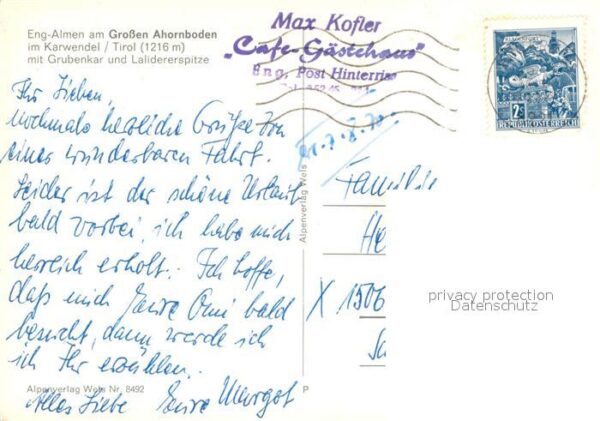 Eng-Almen am Großen Ahornboden
im Karwendel / Tirol (1216 m)
mit Grubenkar und Lalidererspitze
Max Kofler
„Cafe-Gästehaus"
Eng, Post Hinterriss
2S
REPUBLIK ÖSTERREICH
Ihr Lieben,
nochmals herzliche Grüße von
einer wunderbaren Fahrt.
Leider ist der schöne Urlaub
bald vorbei, ich habe mich
herrlich erholt. Ich hoffe,
daß mich Eure Omi bald
besucht, dann werde ich
ich Ihr erzählen.
Alles Liebe Eure Margot
Familie
He
X 1506
privacy protection
Datenschutz
Alpenverlag Wels
Alpenverlag Wels Nr. 8492
P